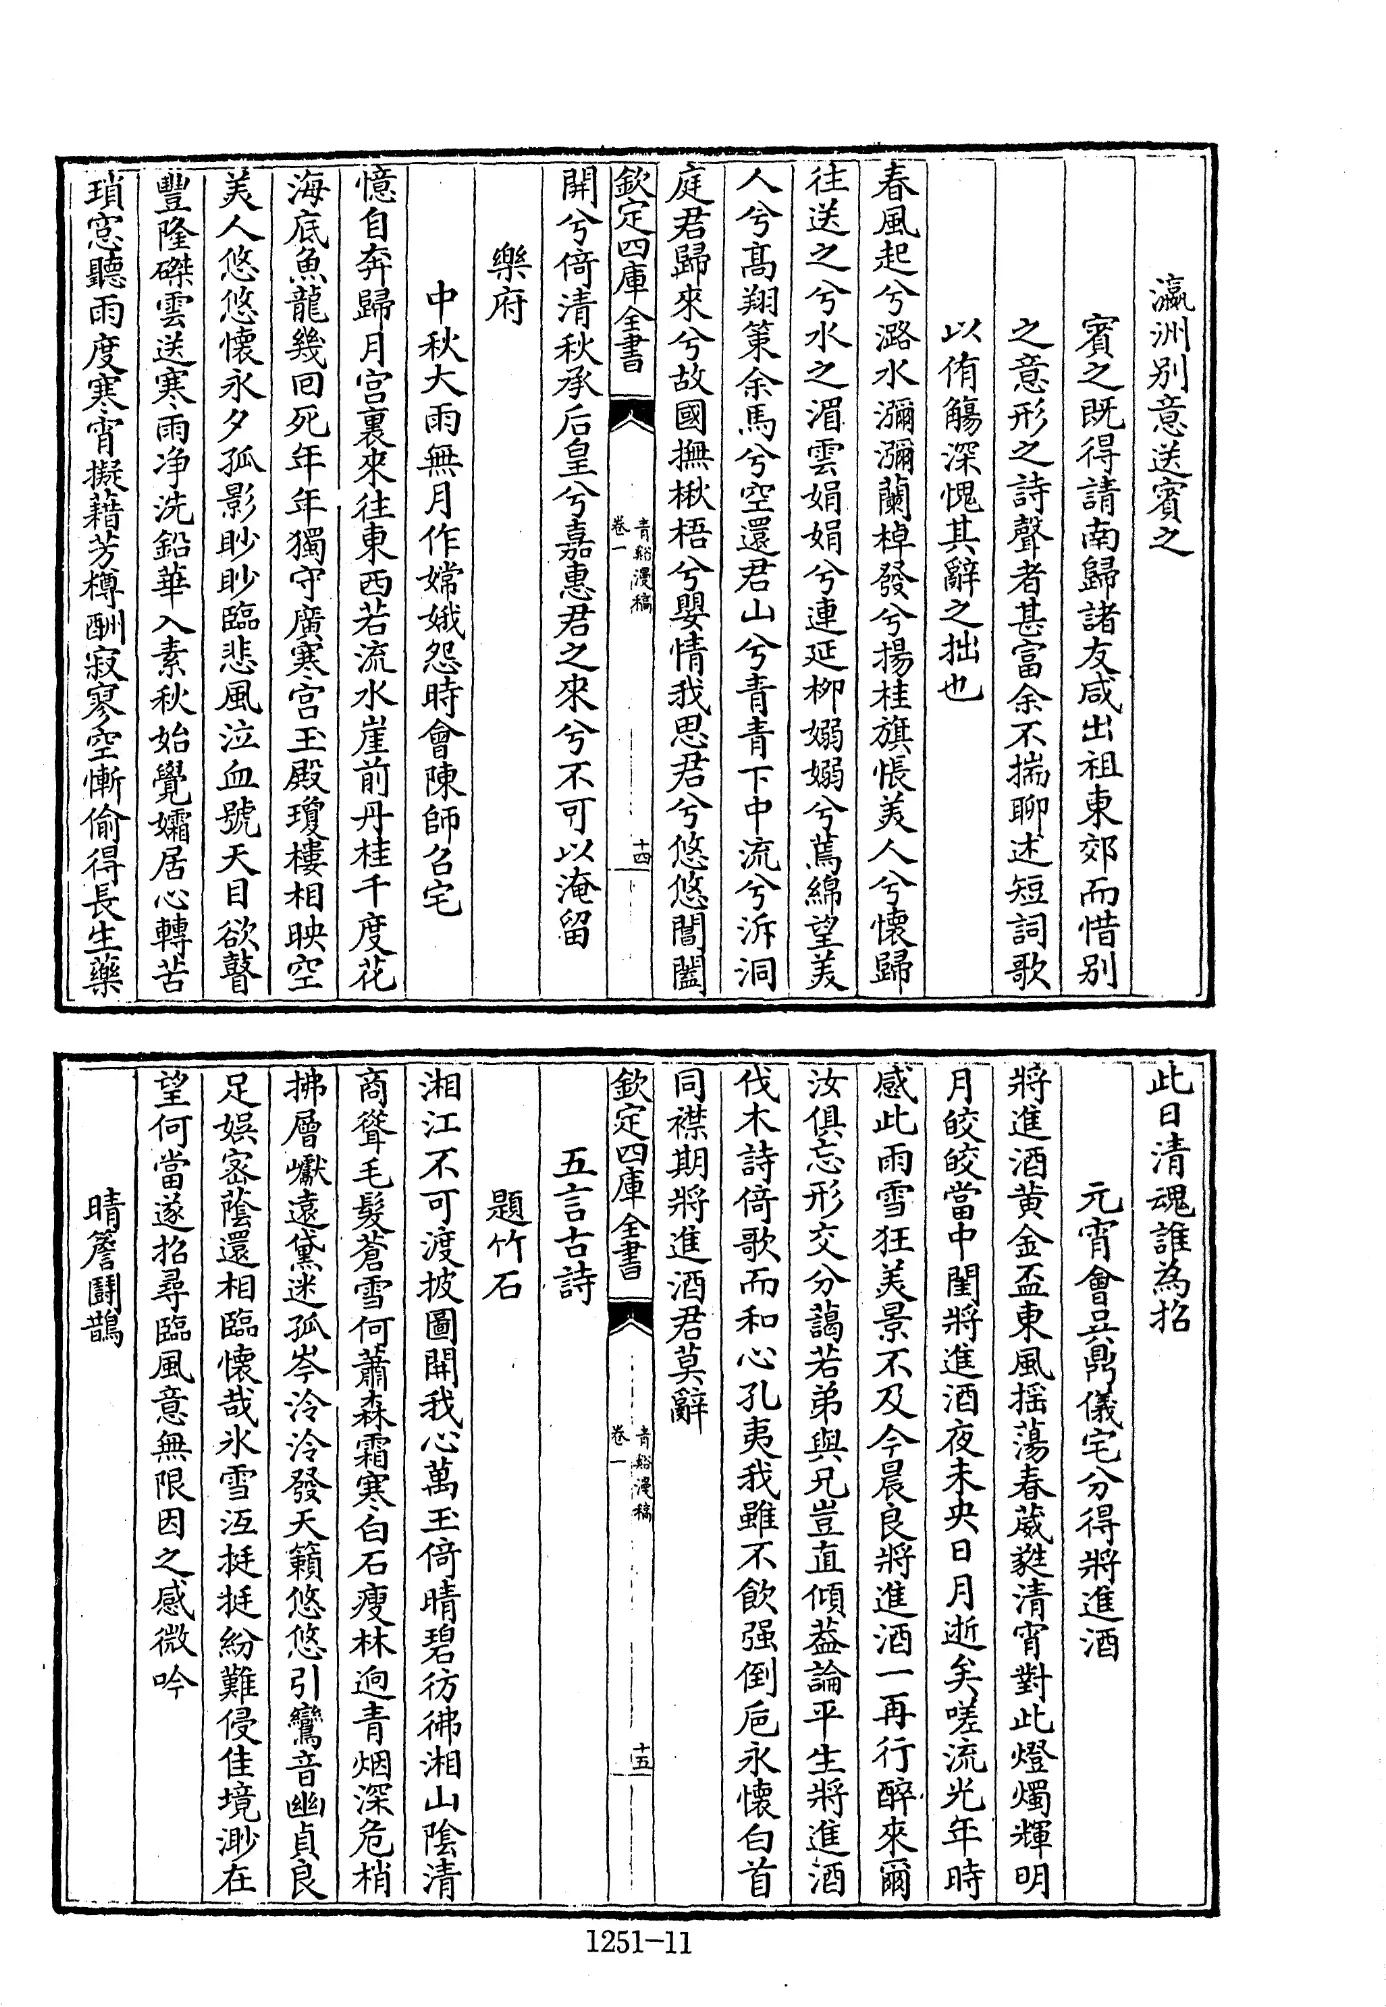 瀛洲别意送賓之
賓之既得請南歸諸友咸出祖東郊而惜别
之意形之詩聲者甚富余不揣聊述短詞歌
以侑觴深愧其辭之拙也
春風起兮潞水瀰瀰蘭棹發兮揚桂旗悵美人兮懷歸
往送之兮水之湄雲娟娟兮連延柳嫋嫋兮蔫綿望美
人兮髙翔策余馬兮空還君山兮青青下中流兮泝洞
庭君歸來兮故國撫楸梧兮嬰情我思君兮悠悠閶闔
欽定四庫全書
青谿漫稿
卷一
十四
開兮倚清秋承后皇兮嘉惠君之來兮不可以淹留
樂府
中秋大雨無月作嫦娥怨時會陳師召宅
憶自奔歸月宫裏來往東西若流水崖前丹桂千度花
海底魚龍幾回死年年獨守廣寒宫玉殿瓊樓相映空
美人悠悠懷永夕孤影眇眇臨悲風泣血號天目欲瞽
豐隆磔雲送寒雨净洗鉛華入素秋始覺孀居心轉苦
瑣窓聽雨度寒宵擬藉芳樽酬寂寥空慚偷得長生藥
此日清魂誰為招
元宵會吳鼎儀宅分得將進酒
將進酒黄金盃東風摇蕩春葳蕤清宵對此燈燭輝明
月皎皎當中閨將進酒夜未央日月逝矣嗟流光年時
感此雨雪狂美景不及今晨良將進酒一再行醉來爾
汝俱忘形交分藹若弟與兄豈直傾葢論平生將進酒
伐木詩倚歌而和心孔夷我雖不飲强倒巵永懷白首
同襟期將進酒君莫辭
欽定四庫全書
青谿漫稿
卷一
十五
五言古詩
題竹石
湘江不可渡披圖開我心萬玉倚晴碧彷彿湘山陰清
商聳毛髮蒼雪何蕭森霜寒白石瘦林逈青烟深危梢
拂層巘遠黛迷孤岑泠泠發天籟悠悠引鸞音幽貞良
足娱宻蔭還相臨懷哉氷雪沍挺挺紛難侵佳境渺在
望何當遂招尋臨風意無限因之感微吟
晴簷鬪鵲
1251-11